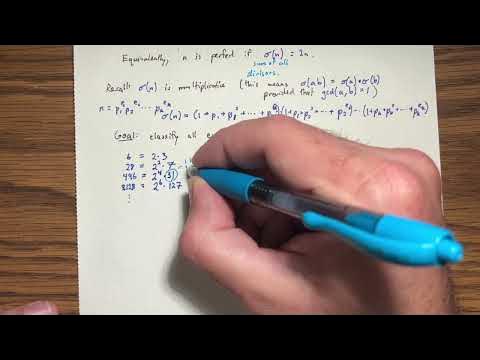 Equivalently, n is perfect if σ(n) = 2n.
sum of all
divisors.
Recall: σ(n) is multiplicative (this means σ(ab) = σ(a)·σ(b)
provided that gcd(a,b) = 1)
n = p₁^e₁ p₂^e₂ ··· pₖ^eₖ
σ(n) = (1+p₁+p₁²+···+p₁^e₁)(1+p₂+p₂²+···+p₂^e₂)···(1+pₖ+pₖ²+···+pₖ^eₖ)
Goal: classify all
6 = 2·3
28 = 2²·7
496 = 2⁴·31
8128 = 2⁶·127
⋮